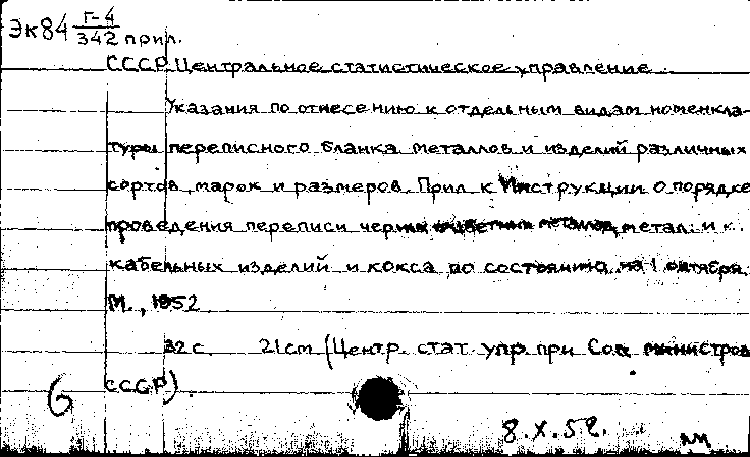 Эк84 Г-4
342 прил.
СССР Центральное статистическое управление.
Указания по отнесению к отдельным видам номенкла-
туры переписного бланка металлов и изделий различных
сортов, марок и размеров. Прил к Инструкции о порядке
проведения переписи черных и цветных металлов, метал. и
кабельных изделий и кокса по состоянию на 1 октября
М., 1952
32 с. 21 см (Центр. стат. упр. при Сов. министров
СССР)
6
8.X.52.